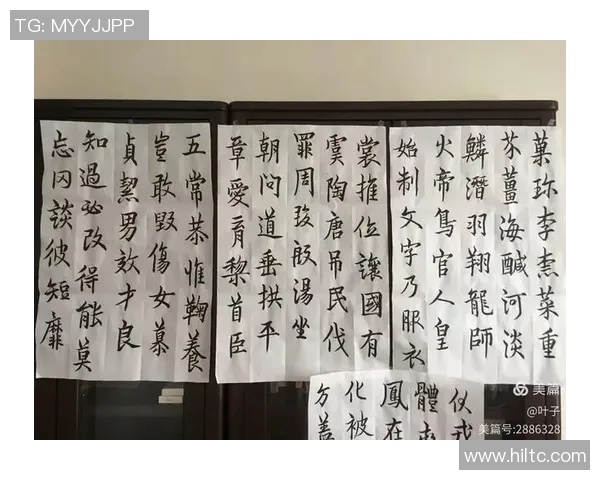 TG: MYYJJPP
菓珎李柰菜重
芥薑海鹹河淡
鱗潛羽翔龍師
火帝鳥官人皇
始制文字乃服衣
裳推位讓國有
虞陶唐吊民伐
罪周發殷湯坐
朝問道垂拱平
章愛育黎首臣
五常恭惟鞠養
豈敢毀傷女慕
貞絜男效才良
知過必改得能莫
忘罔談彼短靡
體
鳳在
化被
方蓋
美篇
@叶子
美篇号:2886328
www.hiltc.com